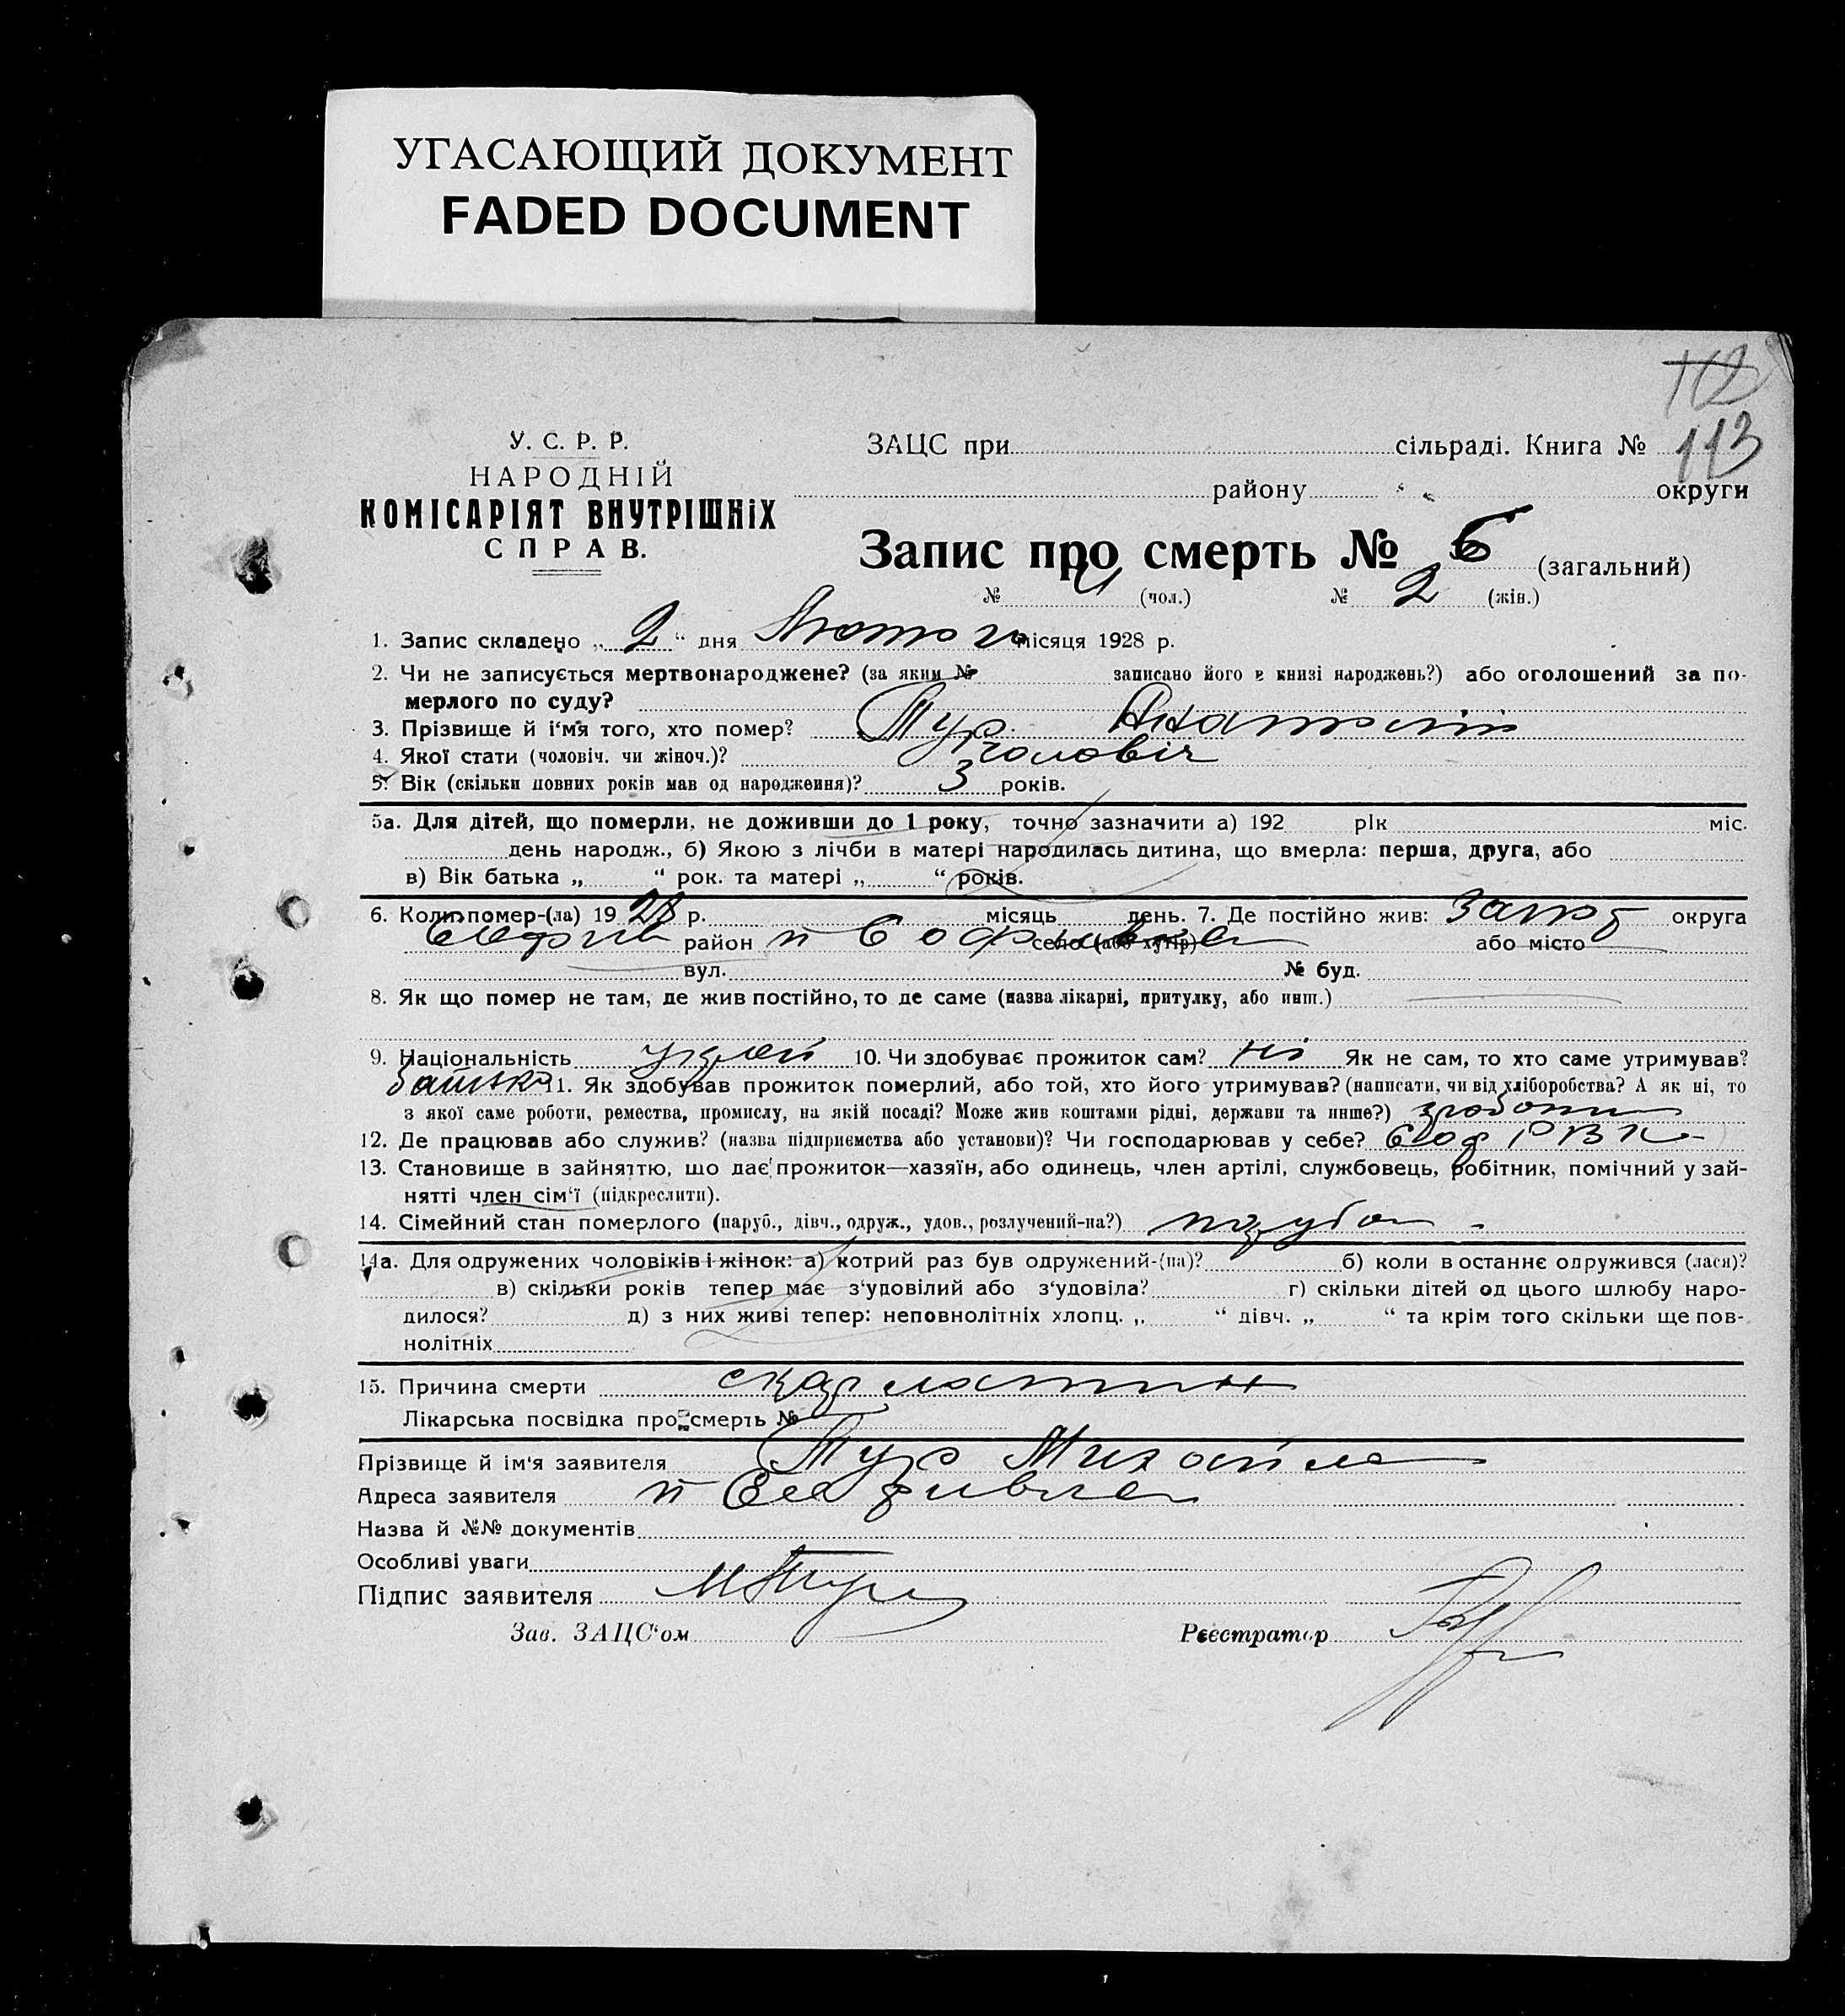 УГАСАЮЩИЙ ДОКУМЕНТ
FADED DOCUMENT
112
113
У. С. Р. Р.
НАРОДНІЙ
КОМІСАРІЯТ ВНУТРІШНІХ
СПРАВ.
ЗАЦС при сільраді. Книга №
району округи
Запис про смерть № 6 (загальний)
№ 4 (чол.) № 2 (жін.)
1. Запис складено „ 2 “ дня Лютого місяця 1928 р.
2. Чи не записується мертвонароджене? (за яким № записано його в книзі народжень?) або оголошений за по-
мерлого по суду?
3. Прізвище й і'мя того, хто помер? Тур Анатолій
4. Якої стати (чоловіч. чи жіноч.)? чоловіч
5. Вік (скільки повних років мав од народження)? 3 років.
5а. Для дітей, що померли, не доживши до 1 року, точно зазначити а) 192 рік міс.
день народж., б) Якою з лічби в матері народилась дитина, що вмерла: перша, друга, або
в) Вік батька „ “ рок. та матері „ “ років.
6. Коли помер-(ла) 19 28 р. місяць день. 7. Де постійно жив: Запор округа
Софіїв район п Софиївка село (або хутір) або місто
вул. № буд.
8. Як що помер не там, де жив постійно, то де саме (назва лікарні, притулку, або инш.)
9. Національність 10. Чи здобуває прожиток сам? ні Як не сам, то хто саме утримував?
батько 11. Як здобував прожиток померлий, або той, хто його утримував? (написати, чи від хліборобства? А як ні, то
з якої саме роботи, ремества, промислу, на якій посаді? Може жив коштами рідні, держави та инше?)
12. Де працював або служив? (назва підприємства або установи)? Чи господарював у себе? Соф РВК
13. Становище в зайняттю, що дає прожиток—хазяїн, або одинець, член артілі, службовець, робітник, помічний у зай-
нятті член сім'ї (підкреслити).
14. Сімейний стан померлого (паруб., дівч., одруж., удов., розлучений-на?) паруб
14а. Для одружених чоловіків і жінок: а) котрий раз був одружений-(на)? б) коли в останнє одружився (лася)?
в) скільки років тепер має з'удовілий або з'удовіла? г) скільки дітей од цього шлюбу наро-
дилося? д) з них живі тепер: неповнолітніх хлопц. „ “ дівч. „ “ та крім того скільки ще пов-
нолітніх
15. Причина смерти скарлатин
Лікарська посвідка про смерть №
Прізвище й ім'я заявителя Тур Михайло
Адреса заявителя п Софиївка
Назва й №№ документів
Особливі уваги
Підпис заявителя МТур
Зав. ЗАЦС'ом Реєстратор